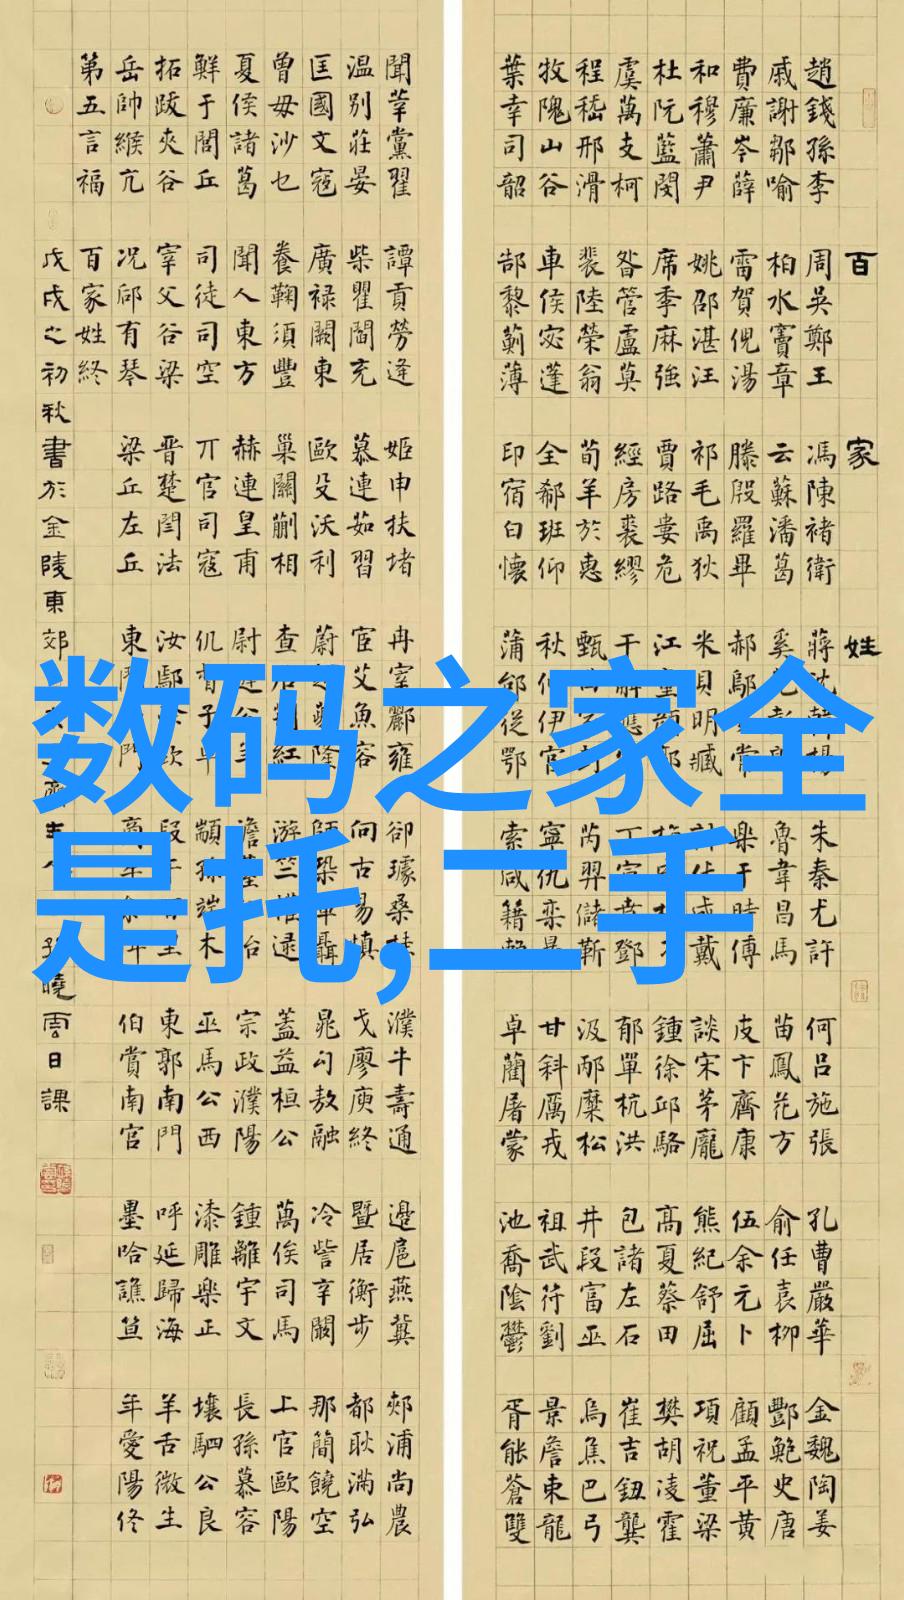 百家姓
趙錢孫李 周吳鄭王 馮陳褚衛 蔣沈韓楊 朱秦尤許 何呂施張 孔曹嚴華 金魏陶姜
戚謝鄒喻 柏水竇章 云蘇潘葛 奚范彭郎 魯韋昌馬 苗鳳花方 俞任袁柳 酆鮑史唐
費廉岑薛 雷賀倪湯 滕殷羅畢 郝鄔常 樂于時傅 皮卞齊康 伍余元卜 顧孟平黃
和穆蕭尹 姚邵湛汪 祁毛禹狄 米貝明臧 計伏成戴 談宋茅龐 熊紀舒屈 項祝董梁
杜阮藍閔 席季麻強 賈路婁危 江童顏郭 鍾徐邱駱 高夏蔡田 樊胡凌霍
虞萬支柯 昝管盧莫 經房裘繆 干解應 丁宣賁鄧 郁單杭洪 包諸左石 崔吉鈕龔
程嵇邢滑 裴陸榮翁 荀羊於惠 甄曲封 芮羿儲靳 汲邴糜松 井段富巫 烏焦巴弓
牧隗山谷 車侯宓蓬 全郗班仰 秋仲伊宮 寧仇欒暴 甘斜厲戎 祖武符劉 景詹束龍
葉幸司韶 郜黎薊薄 印宿白懷 蒲邰從鄂 索咸籍賴 卓藺屠蒙 池喬陰鬱 胥能蒼雙
聞莘黨翟 譚貢勞逄 姬申扶堵 冉宰酈雍 卻璩桑桂 濮牛壽通 邊扈燕冀 郟浦尚農
温別莊晏 柴瞿閻充 慕連茹習 宦艾魚容 向古易慎 戈廖庾終 暨居衡步 都耿滿弘
匡國文寇 廣祿闕東 歐殳沃利 蔚越夔隆 師鞏厙聶 晁勾敖融 冷訾辛闞 那簡饒空
曾毋沙乜 養鞠須豐 巢關蒯相 查后荊紅 游竺權逯 蓋益桓公 萬俟司馬 上官歐陽
夏侯諸葛 聞人東方 赫連皇甫 尉遲公羊 澹臺 宗政濮陽 鍾離宇文 長孫慕容
鮮于閭丘 司徒司空 亓官司寇 仉督子車 顓孫端木 巫馬公西 漆雕樂正 壤駟公良
拓跋夾谷 宰父谷梁 晉楚閆法 汝鄢涂欽 段干百里 東郭南門 呼延歸海 羊舌微生
岳帥緱亢 況郈有琴 梁丘左丘 東門門 商牟 伯賞南宮 墨哈譙笪 年愛陽佟
第五言福 百家姓終
戊戌之初秋書於金陵東郊 曉雲日課
数码之家全
是托,二手